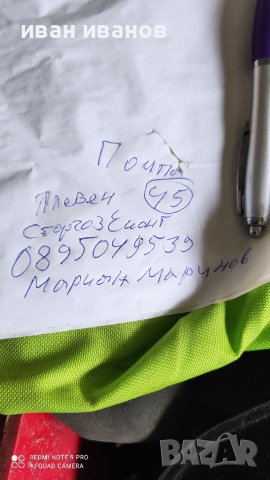 иван иванов
Помпа
Плевен 45
Сторгозия
0895049539
Мариян Маринов
REDMI NOTE 9 PRO
AI QUAD CAMERA
BAZAR